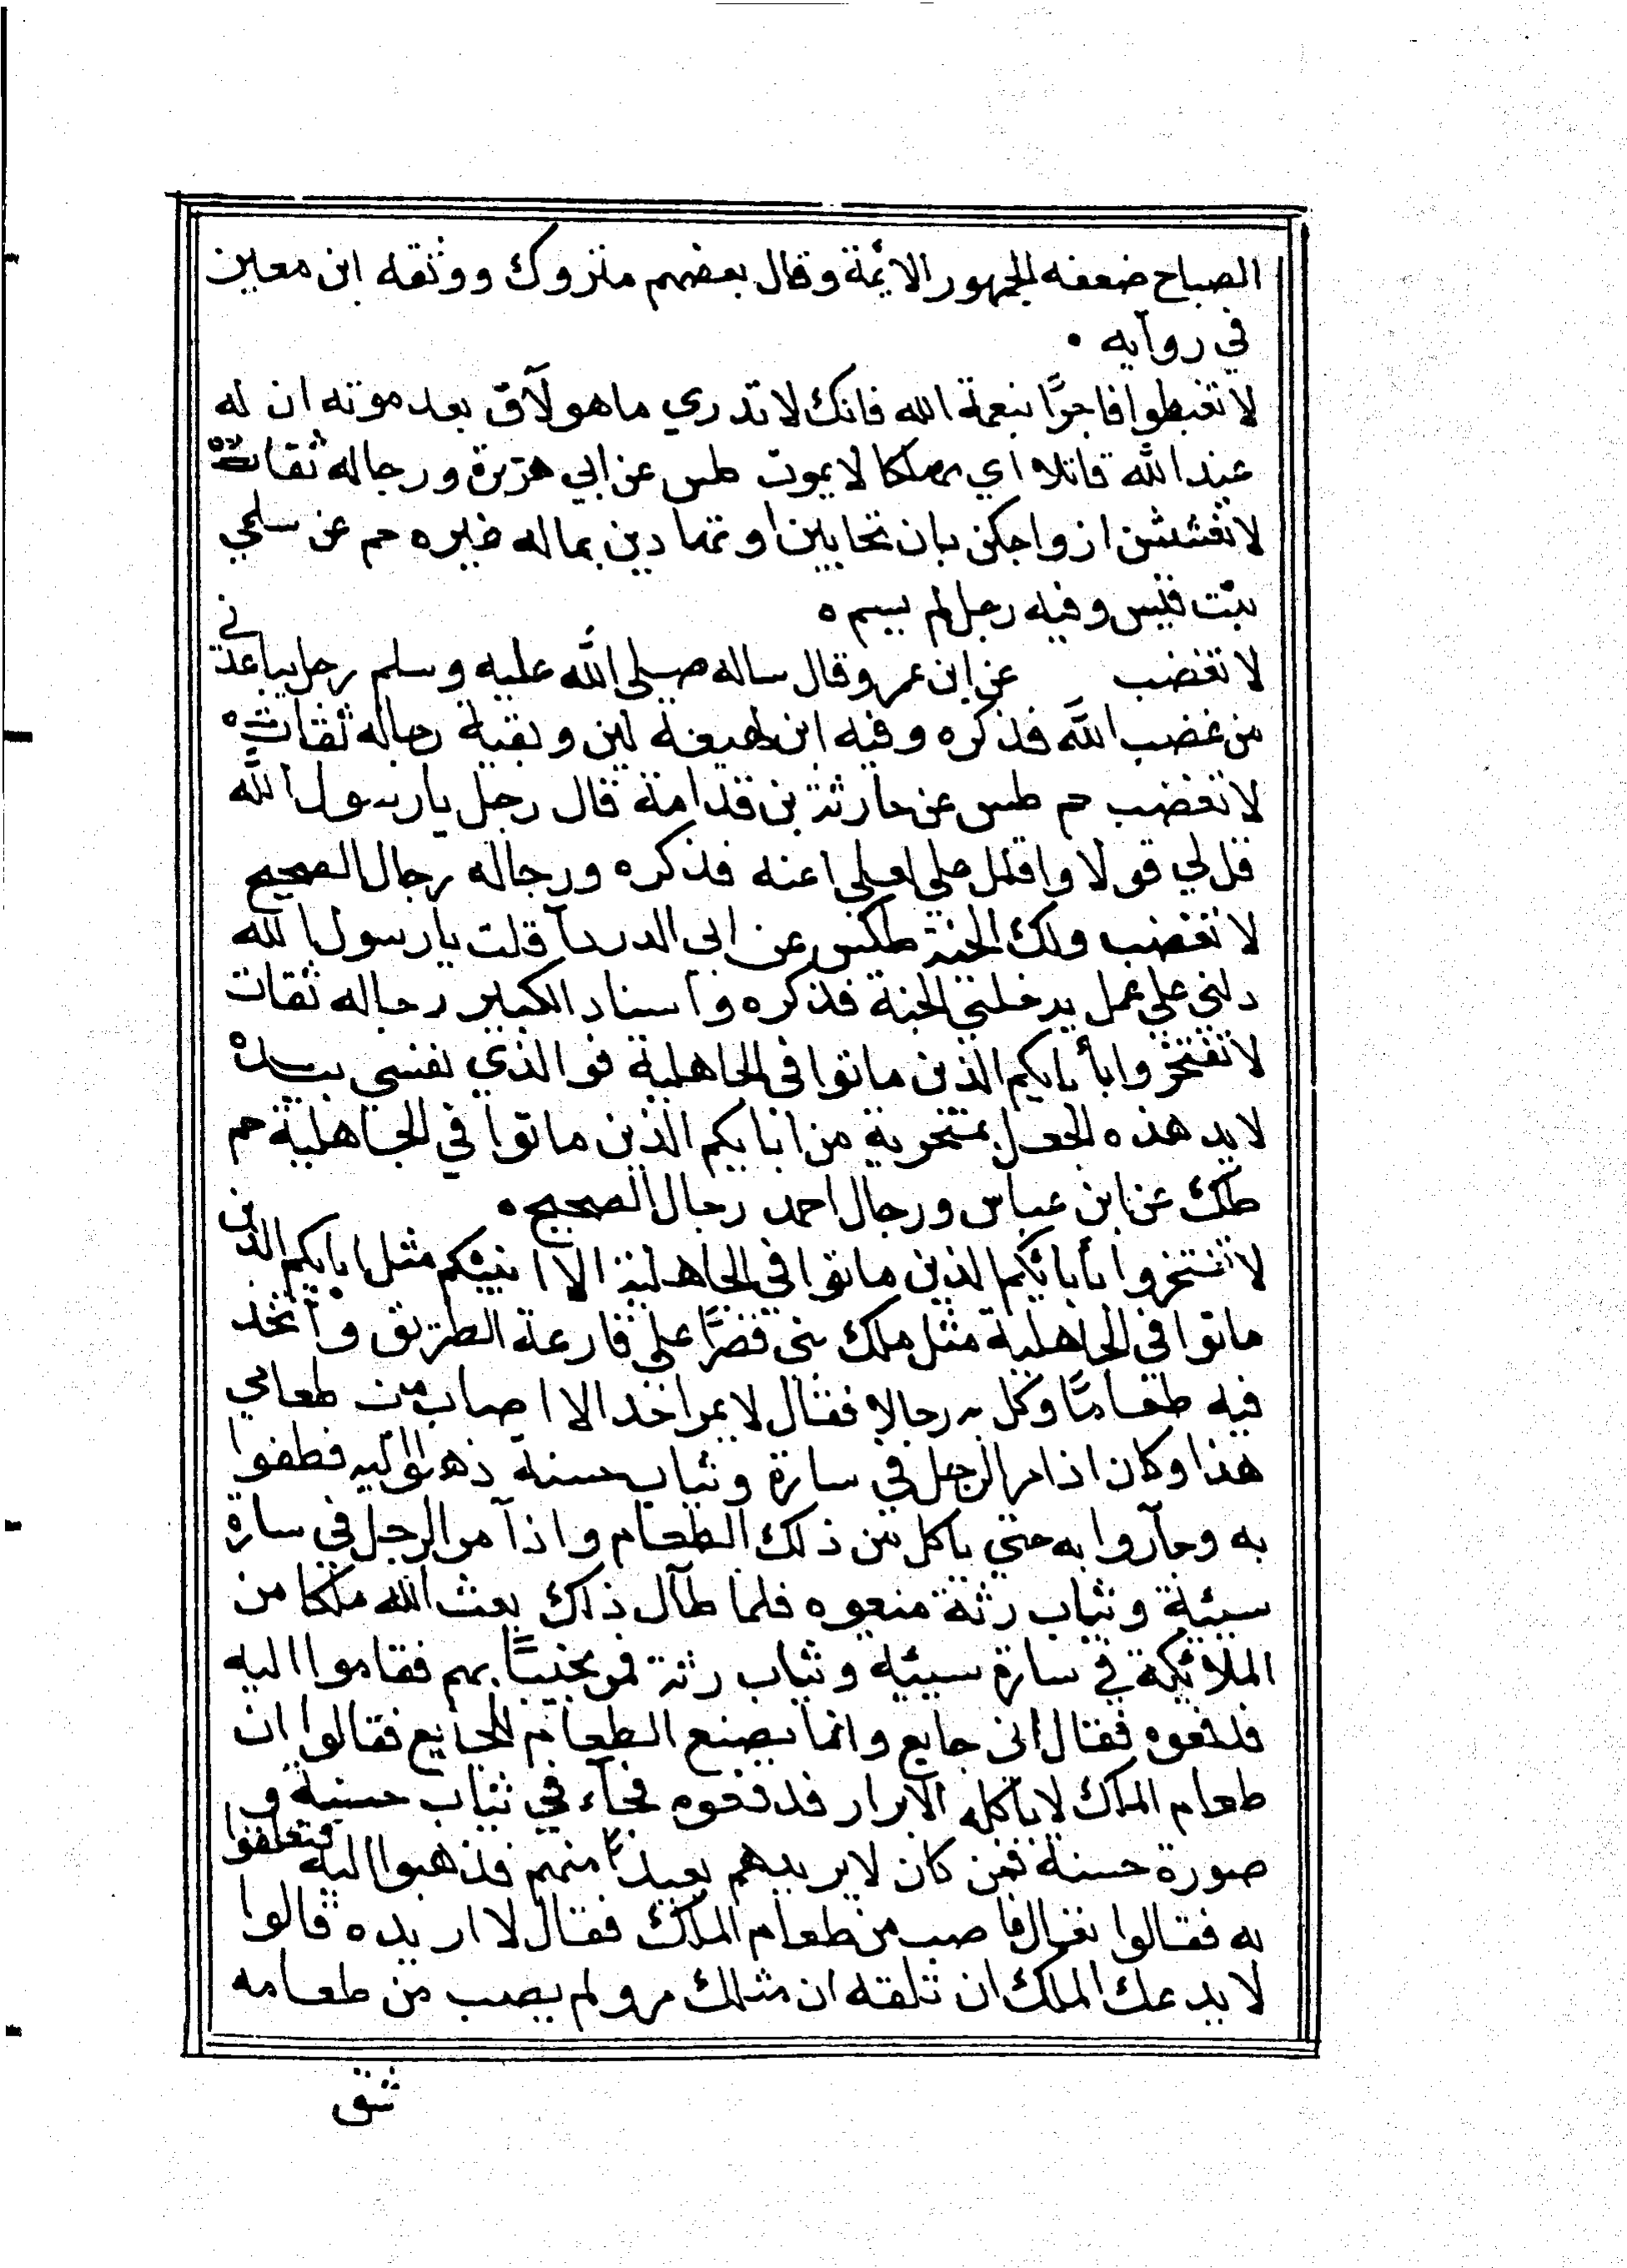 الصباح ضعفه الجمهور الائمة وقال بعضهم متروك ووثقه ابن معين
في روايه •
لا تغبطوا فاجرًا بنعمة الله فانك لا تدري ما هو لآق بعد موته ان له
عند الله قاتلا اي مهلكا لا يموت طس عن ابي هريرة ورجاله ثقات ه
لا تغششن ازواجكن بان تحابين او تهادين بماله غيره حم عن سلمي
بنت قيس وفيه رجل لم يسم ه
لا تغضب عن ابن عمرو قال ساله صلى الله عليه وسلم رجل يباعدني
من غضب الله فذكره وفيه ابن لهيعة لين وبقية رجاله ثقات ه
لا تغضب حم طس عن حارثة بن قدامة قال رجل يارسول الله
قل لي قولا واقلل علي لعلي اعنه فذكره ورجاله رجال الصحيح
لا تغضب ولك الجنة طكس عن ابي الدردآ قلت يارسول الله
دلني علي عمل يدخلني الجنة فذكره واسناد الكبير رجاله ثقات
لا تفتخروا بأبايكم الذين ماتوا في الجاهلية فوالذي نفسي بيده
لا يد هذه الجعل بمنخريه من ابايكم الذين ماتوا في الجاهلية حم
طك عن ابن عباس ورجال احمد رجال الصحيح ه
لا تفتخروا بأبائكم الذين ماتوا في الجاهلية الا انبئكم مثل ابايكم الذين
ماتوا في الجاهلية مثل ملك بني قصرًا علي قارعة الطريق واتخد
فيه طعامًا وكل به رجالا فقال لا يمر احد الا اصاب من طعامي
هذا وكان اذا مر الرجل في سارة وثياب حسنة ذهبوا اليه فطفوا
به وجآروا به حتي ياكل من ذلك الطعام واذآ مر الرجل في سارة
سيئة وثياب رثة منعوه فلما طآل ذلك بعث الله ملكا من
الملائكة في سارة سيئة وثياب رثة فمر بجنبتا بهم فقاموا اليه
فدفعوه فقال اني جايع وانما يصنع الطعام للجايع فقالوا ان
طعام الملك لا ياكله الابرار فدفعوه فجآء في ثياب حسنة و
صورة حسنة فمن كان لا يريدهم بعيدًا منهم فذهبوا اليه فتعلقوا
به فقالوا تعال فاصب من طعام الملك فقال لا اريده قالوا
لا يدعك الملك ان تلقه ان مثلك مر ولم يصب من طعامه
شق